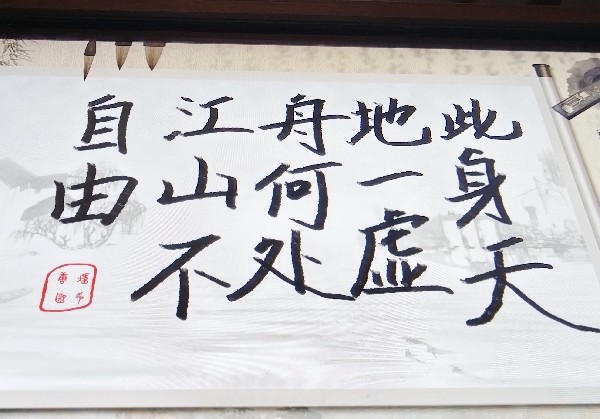 此身天
地一虚
舟何处
江山不
自由